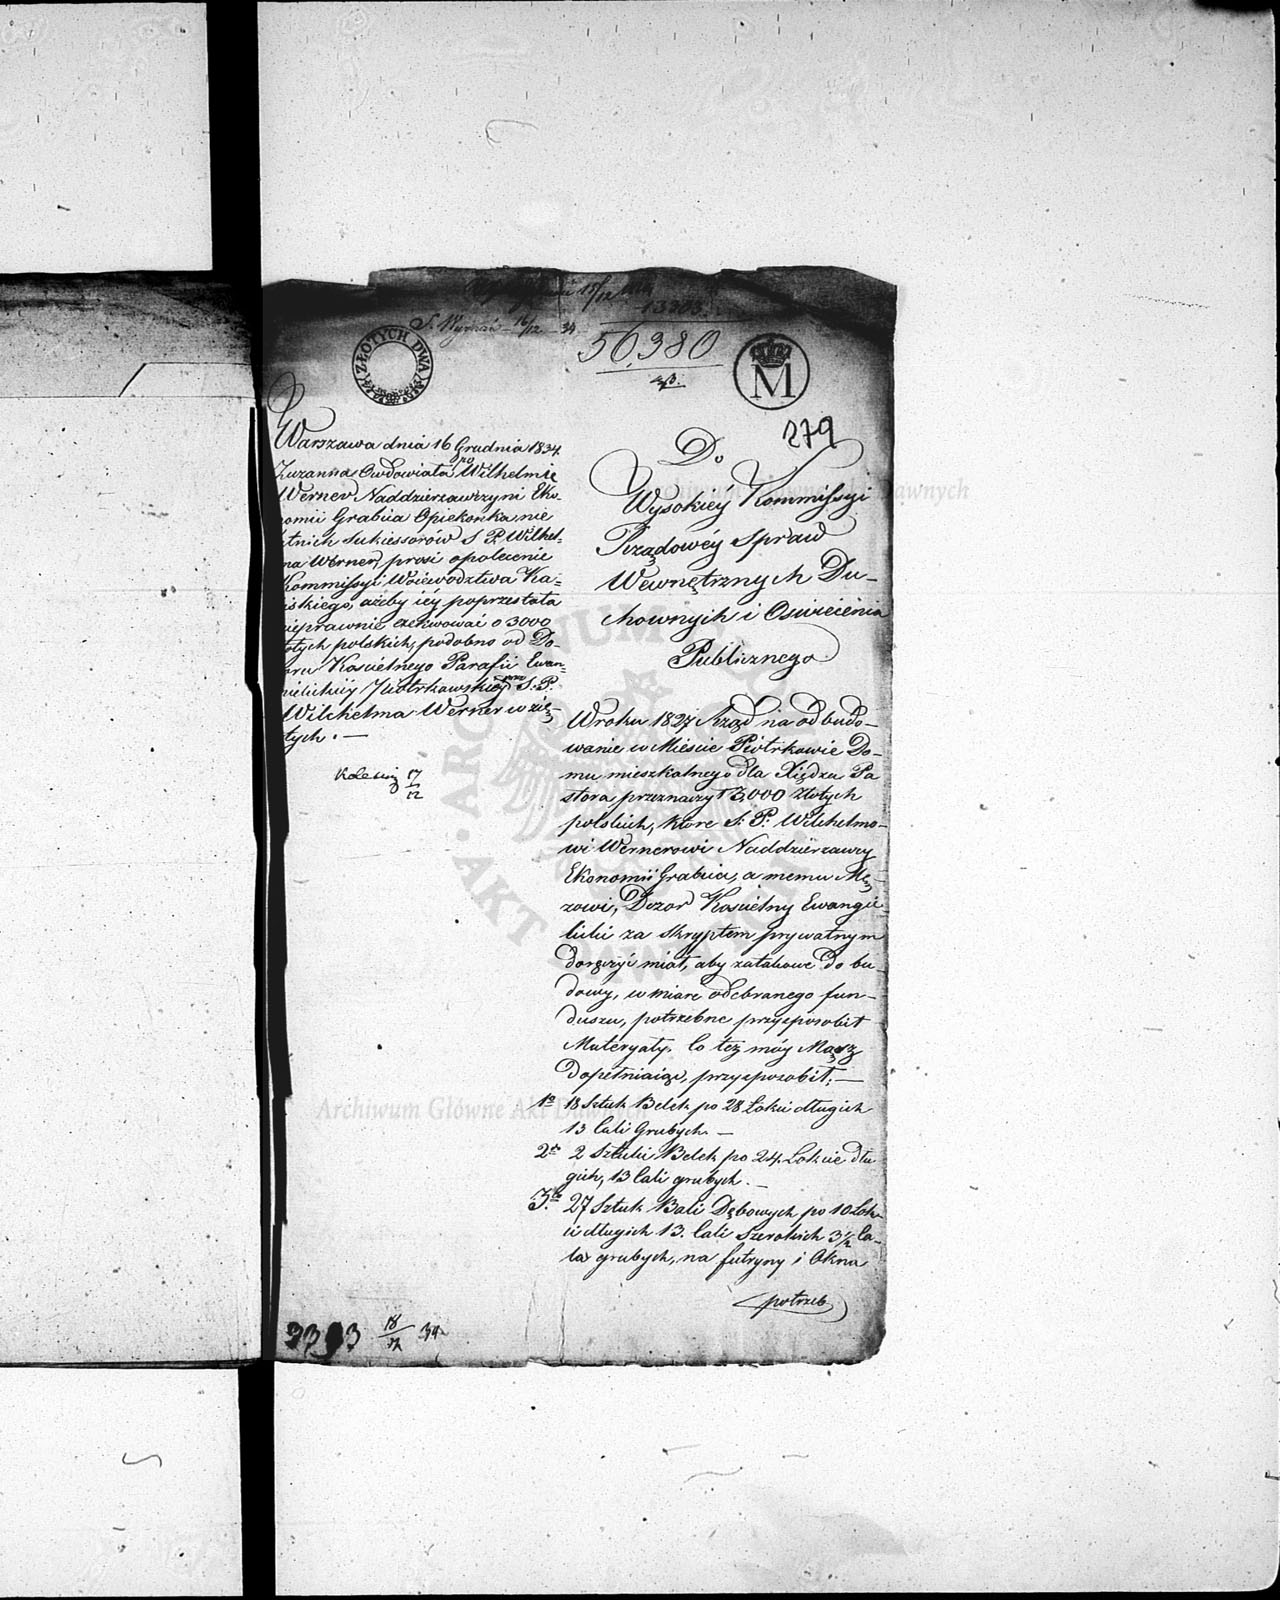 15/12
13303.
S. Wyznań 16/12 34
56,380
ZŁOTYCH DWA
M
279
Warszawa dnia 16 Grudnia 1834
Zuzanna Owdowiała po Wilhelmie
Werner Naddzierzawczyni Eko-
nomii Grabica Opiekonka nie
letnich Sukcessorów S P. Wilhel-
ma Werner, prosi o polecenie
Kommissyi Woiewodztwa Ka-
liskiego, ażeby iéy poprzestała
nieprawnie exekwować o 3000
złotych polskich, podobno od Do-
zoru Kościelnego Parafii Ewan-
gielickiéy Piotrkowskiéy przez S. P.
Wilchelma Werner wzię-
tych. —
Kolesiń 17/12
Do
Wysokiéy Kommissyi
Rządowéy Spraw
Wewnętrznych Du-
chownych i Oświecenia
Publicznego
W roku 1827 Rząd na odbudo-
wanie w Mieście Piotrkowie Do-
mu mieszkalnego dla Xiędza Pa
stora przeznaczył 3,000 Złotych
polskich, które S: P: Wilchelmo-
wi Wernerowi Naddzierzawcy
Ekonomii Grabica, a memu Mę-
zowi, Dozor Kościelny Ewangie-
licki za Skryptem prywatnym
doręczyć miał, aby zatakowe do bu-
dowy, w miarę odebranego fun-
duszu, potrzebne przysposobił
Materyały. Co też móy Mąż
dopełniaiąc, przysposobił: —
1o 18 Sztuk Belek po 28 Łokci długich
13 Cali Grubych. —
2o 2 Sztuki Belek po 24 Łokcie dłu
gich, 13 Cali grubych. —
3o 27 Sztuk Bali Dębowych po 10 Łok-
ci długich 13. Cali Szerokich 3 1/2 Ca-
la grubych, na futryny i Okna
potrzeb
3393 18/12 34
Archiwum Główne Akt Dawnych
Archiwum Główne Akt Dawnych
ARCHIWUM GŁÓWNE AKT DAWNYCH